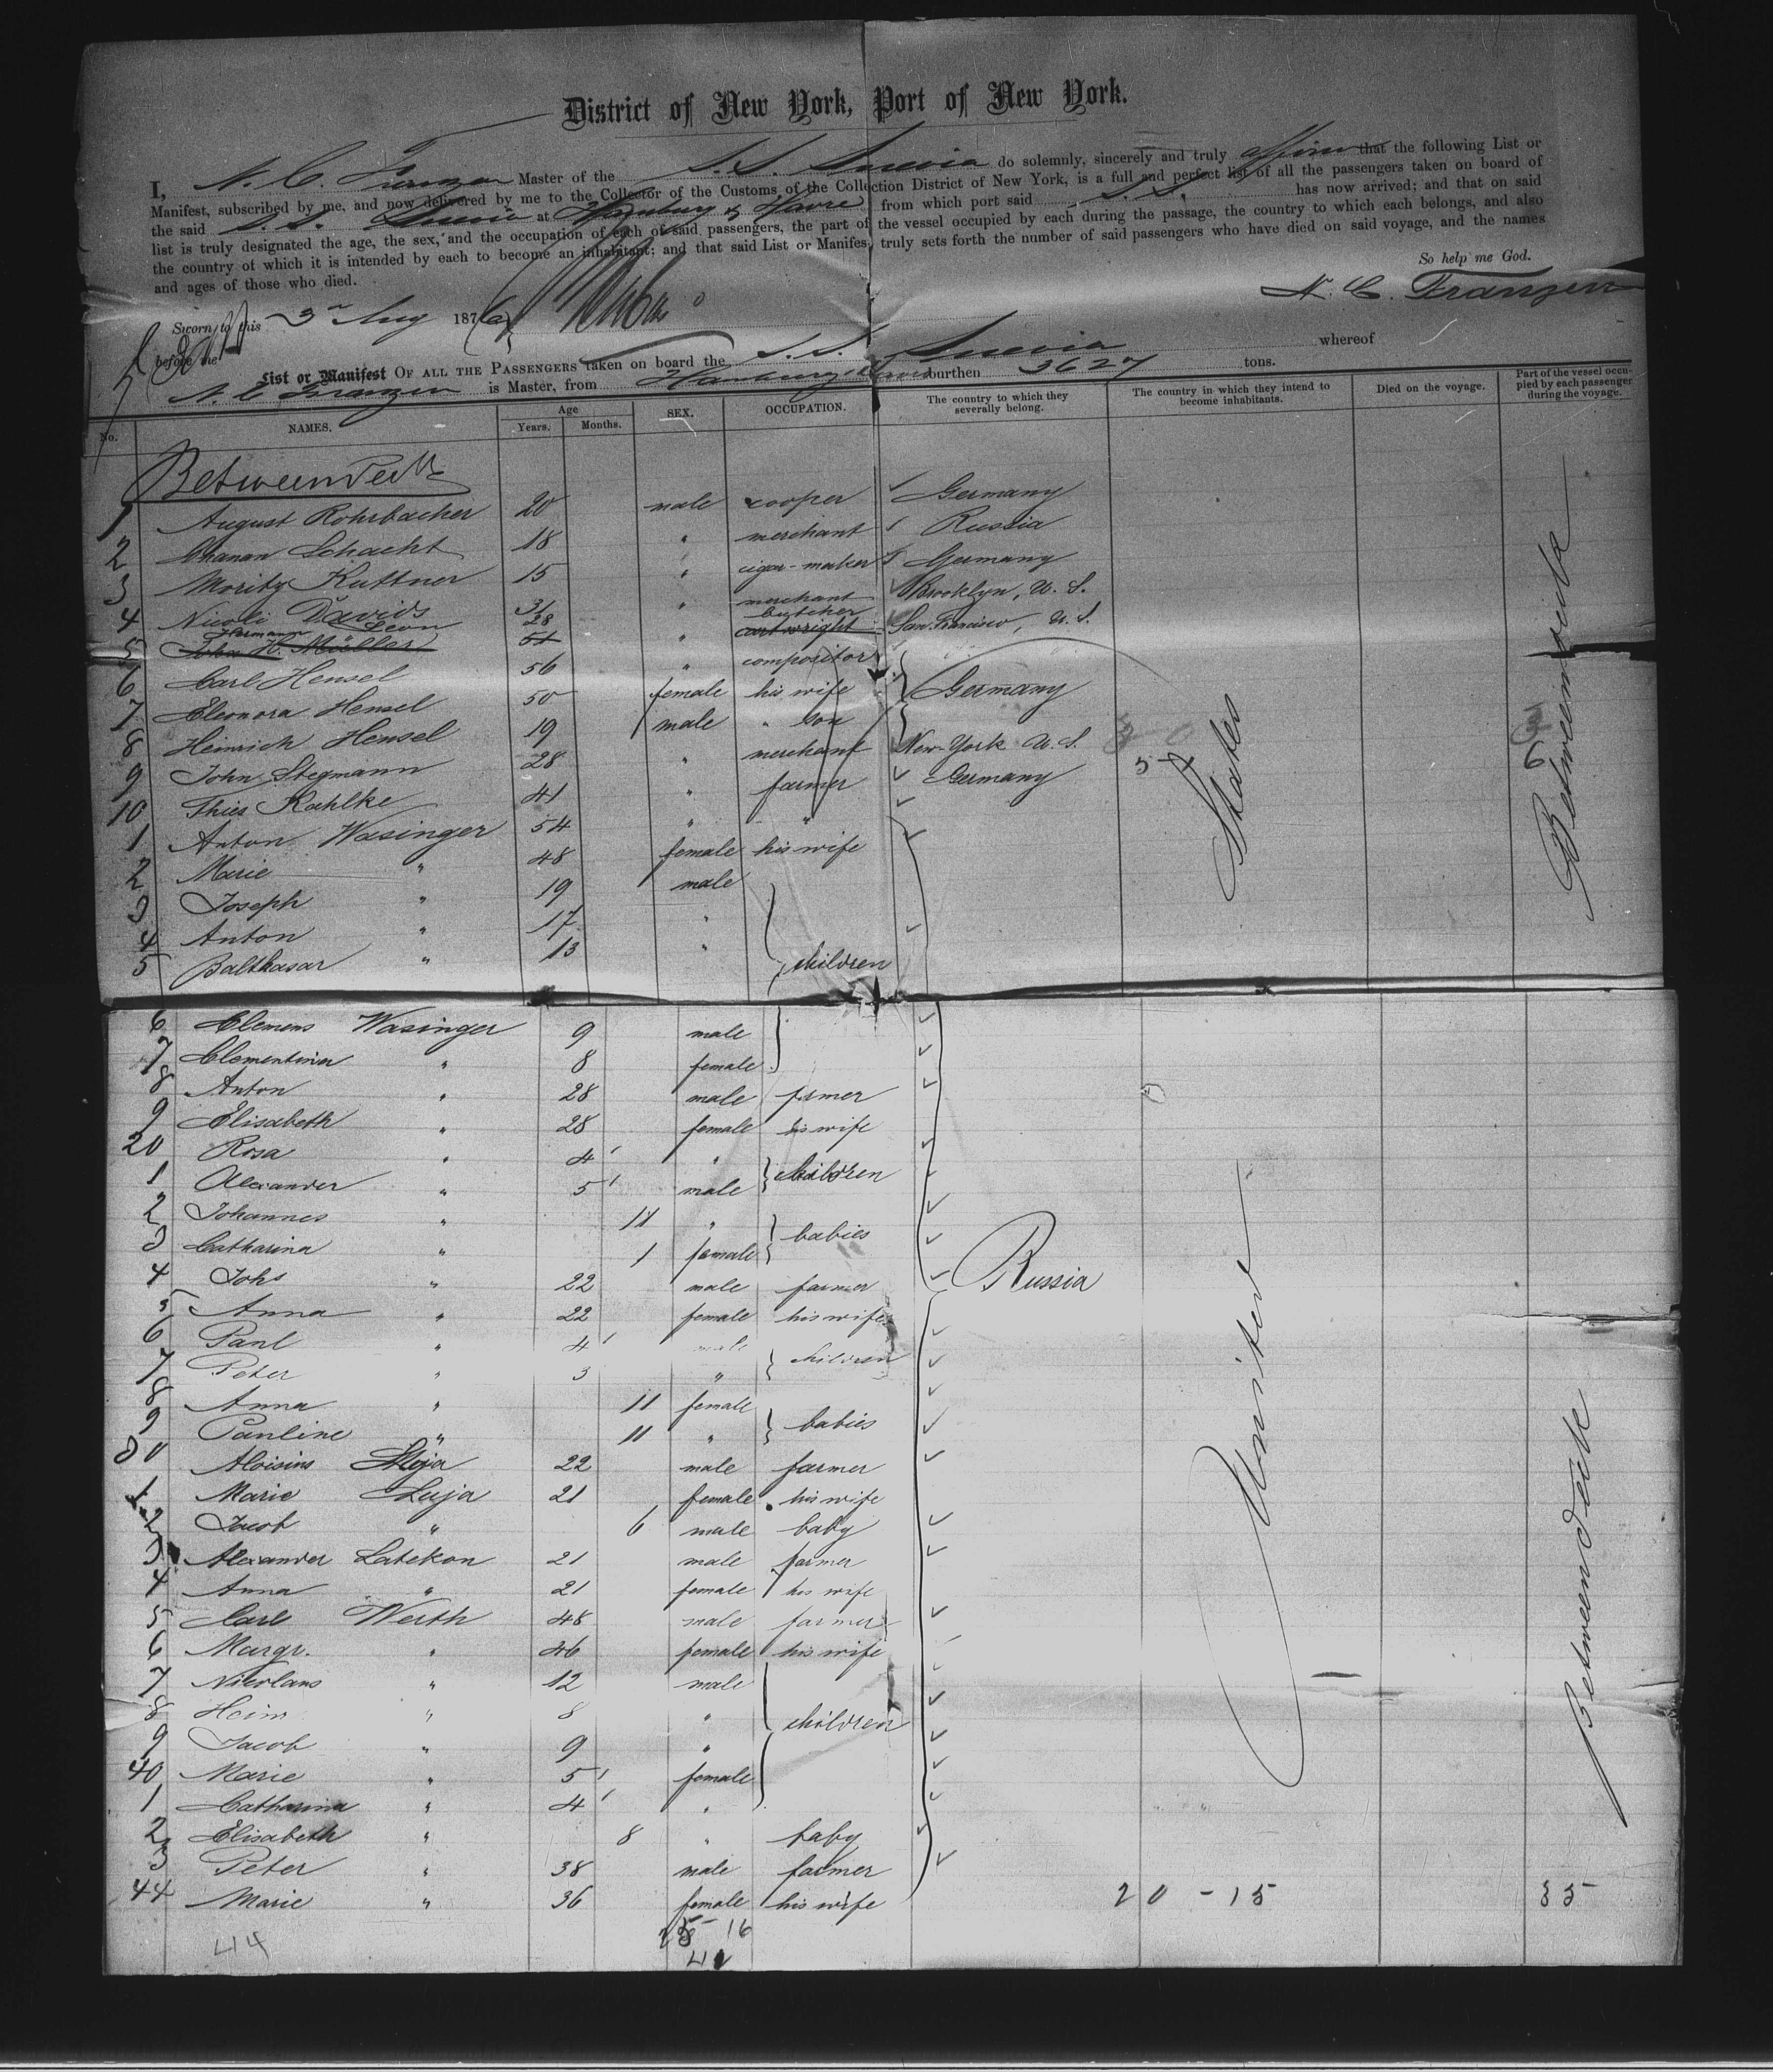 District of New York, Port of New York.
I, N. C. Franzen Master of the S.S. Suevia do solemnly, sincerely and truly affirm that the following List or
Manifest, subscribed by me, and now delivered by me to the Collector of the Customs of the Collection District of New York, is a full and perfect list of all the passengers taken on board of
the said S.S. Suevia at Hamburg & Havre from which port said S.S. has now arrived; and that on said
list is truly designated the age, the sex, and the occupation of each of said passengers, the part of the vessel occupied by each during the passage, the country to which each belongs, and also
the country of which it is intended by each to become an inhabitant; and that said List or Manifest truly sets forth the number of said passengers who have died on said voyage, and the names
and ages of those who died. So help me God.
N. C. Franzen
Sworn to this 3rd Aug 1876
before me
List or Manifest OF ALL THE PASSENGERS taken on board the S.S. Suevia whereof
N. C. Franzen is Master, from Hamburg & Havre burthen 3627 tons.
No. NAMES. Age Years. Months. SEX. OCCUPATION. The country to which they severally belong. The country in which they intend to become inhabitants. Died on the voyage. Part of the vessel occupied by each passenger during the voyage.
Betweendeck
1 August Rohrbacher 20 male cooper Germany
2 Chanan Schacht 18 " merchant Russia
3 Moritz Kuttner 15 " cigar-maker Germany
4 Nicoli Davids 31 " merchant Brooklyn, U. S.
Hermann Leon 28 butcher
5 John H. Müller 51 " cartwright San Francisco, U. S.
6 Carl Hensel 56 " compositor
7 Eleonora Hensel 50 female his wife Germany
8 Heinrich Hensel 19 male " son
9 John Stegmann 28 " merchant New-York U. S.
10 Thies Kahlke 41 " farmer Germany
1 Anton Wasinger 54 " "
2 Marie " 48 female his wife
3 Joseph " 19 male
4 Anton " 17 "
5 Balthasar " 13 " children
6 Clemens Wasinger 9 male
7 Clementina " 8 female
8 Anton " 28 male farmer
9 Elisabeth " 28 female his wife
20 Rosa " 4 "
1 Alexander " 5 male children
2 Johannes " 11 "
3 Catharina " 1 female babies
4 Johs " 22 male farmer Russia
5 Anna " 22 female his wife
6 Paul " 4 male
7 Peter " 3 " children
8 Anna " 11 female
9 Pauline " 11 " babies
30 Aloisius Luja 22 male farmer
1 Marie Luja 21 female his wife
2 Jacob " 6 male baby
3 Alexander Latekon 21 male farmer
4 Anna " 21 female his wife
5 Carl Werth 48 male farmer
6 Margr. " 46 female his wife
7 Nicolaus " 12 male
8 Heinr " 8 " children
9 Jacob " 9 "
40 Marie " 5 female
1 Catharina " 4 "
2 Elisabeth " 8 " baby
3 Peter " 38 male farmer
44 Marie " 36 female his wife
United States
Betweendeck
Betweendeck
20 - 15 35
16
44